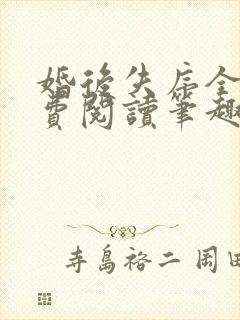 婚後失序全
費閱讀筆趣
寺島裕二 岡田